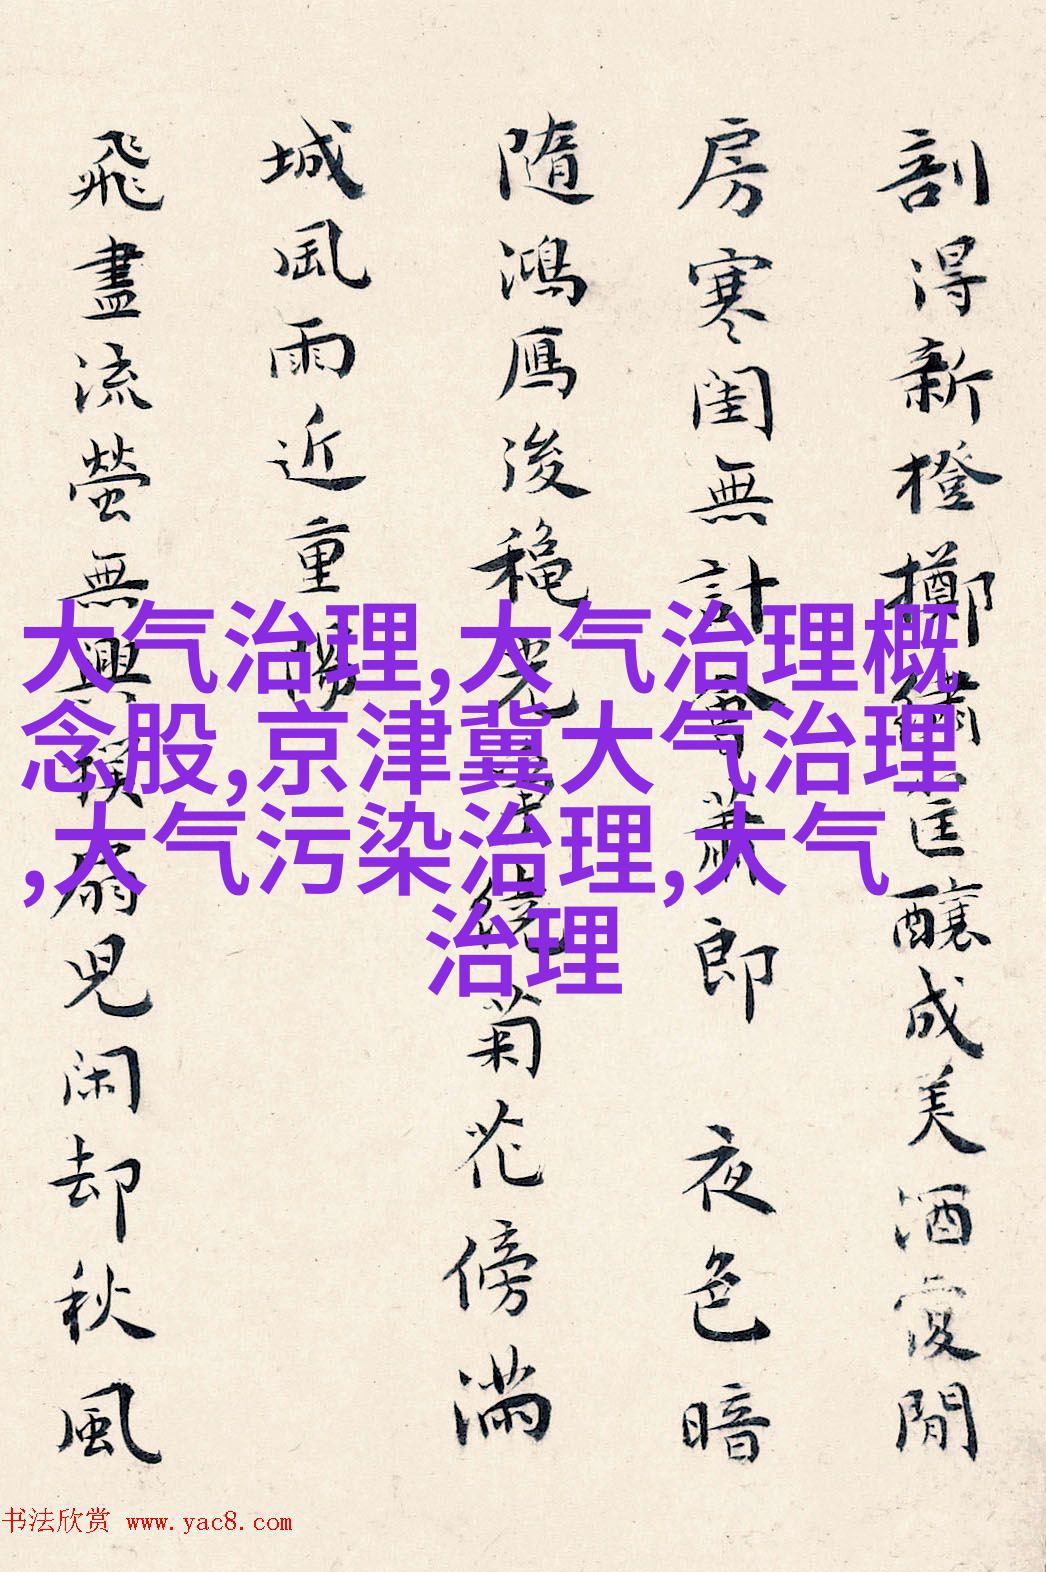 剖得新橙擲繡筐釀成美酒愛閒
房寒閨無計會蕭郎 夜色暗
隨鴻鴈後穐光
繞菊花傍滿
城風雨近重陽
飛盡流螢無興撲扇兒闲却秋風
大气治理,大气治理概
念股,京津冀大气治理
,大气污染治理,大气
治理
书法欣赏 www.yac8.com